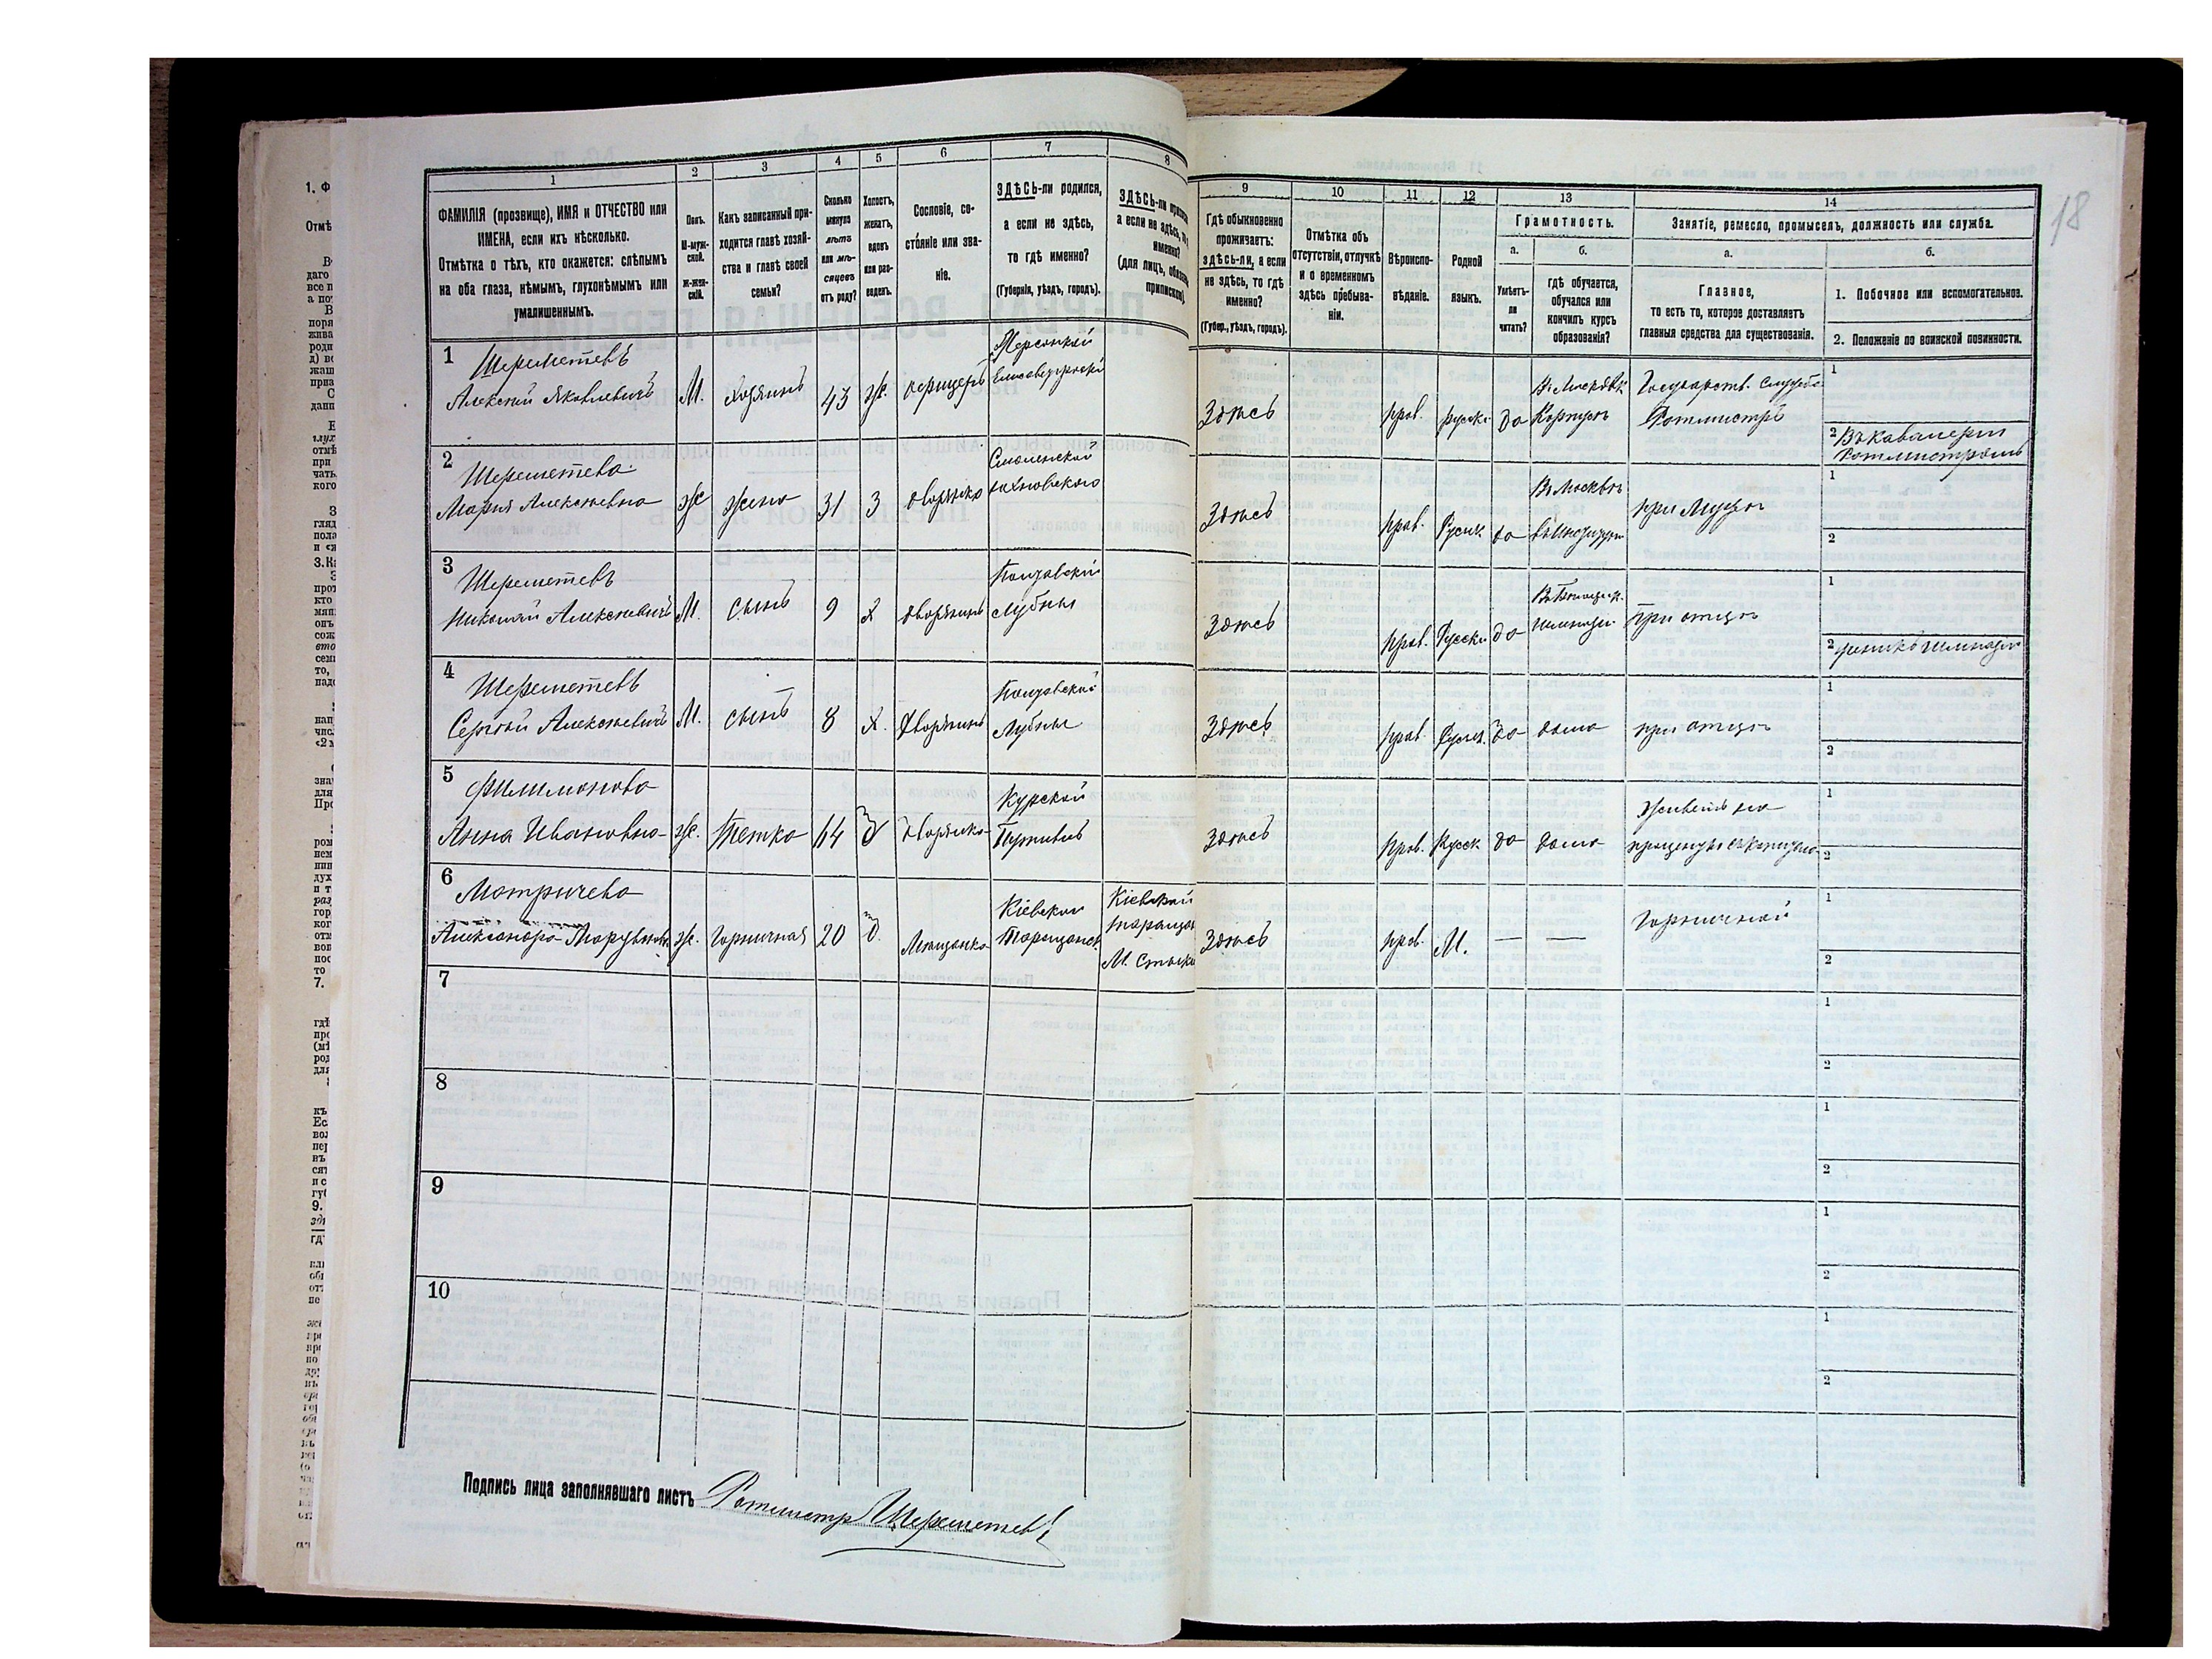 1 2 3 4 5 6 7 8
ФАМИЛІЯ (прозвище), ИМЯ и ОТЧЕСТВО или
ИМЕНА, если ихъ нѣсколько.
Отмѣтка о тѣхъ, кто окажется: слѣпымъ
на оба глаза, нѣмымъ, глухонѣмымъ или
умалишеннымъ.
Полъ.
М-муж-
ской.
Ж-жен-
скій.
Какъ записанный при-
ходится главѣ хозяй-
ства и главѣ своей
семьи?
Сколько
минуло
лѣтъ
или мѣ-
сяцевъ
отъ роду?
Холостъ,
женатъ,
вдовъ
или раз-
веденъ.
Сословіе, со-
стояніе или зва-
ніе.
ЗДѢСЬ-ли родился,
а если не здѣсь,
то гдѣ именно?
(Губернія, уѣздъ, городъ).
ЗДѢСЬ-ли
а если не здѣсь,
именно?
(для лицъ,
9 10 11 12 13 14
Гдѣ обыкновенно
проживаетъ:
здѣсь-ли, а если
не здѣсь, то гдѣ
именно?
(Губер., уѣздъ, городъ).
Отмѣтка объ
отсутствіи, отлучкѣ
и о временномъ
здѣсь пребыва-
ніи.
Вѣроиспо-
вѣданіе.
Родной
языкъ.
Грамотность.
а.
Умѣетъ-
ли
читать?
б.
гдѣ обучается,
обучался или
кончилъ курсъ
образованія?
Занятіе, ремесло, промыселъ, должность или служба.
а.
Главное,
то есть то, которое доставляетъ
главныя средства для существованія.
б.
1. Побочное или вспомогательное.
2. Положеніе по воинской повинности.
18
1 Шереметевъ
Алексѣй Яковлевичъ М. Хозяинъ 43 ж. офицеръ Херсонской
Елисаветградскій
Здѣсь прав. русскі да Корпусъ Государств. Служба
Ротмистръ
1
2 Въ кавалеріи
Ротмистромъ
2 Шереметева
Марія Алексѣевна Ж жена 31 З дворянка Смоленской
Здѣсь прав. Русск. да Въ Москвѣ
въ Институт при Мужѣ
1
2
3 Шереметевъ
Николай Алексѣевичъ М. сынъ 9 Х дворянинъ Полтавской
Лубны
Здѣсь прав. Русскі да при отцѣ
1
2 ученикъ Гимназіи
4 Шереметевъ
Сергѣй Алексѣевичъ М. сынъ 8 Х. Дворянинъ Полтавской
Лубны
Здѣсь прав. Русск. да дома при отцѣ
1
2
5 Филимонова
Анна Ивановна ж. Тетка 64 Д Дворянка Курской
Путивль
Здѣсь прав. Русск да дома Живетъ на
проценты съ капитала
1
2
6 Мотричева
Александра ж. Горничная 20 Д. Мѣщанка Кіевской
Таращанск.
Кіевской
Таращан
М.
Здѣсь прав. М. — — Горничной
1
2
7
1
2
8
1
2
9
1
2
10
1
2
Подпись лица заполнявшаго листъ Ротмистръ Шереметевъ